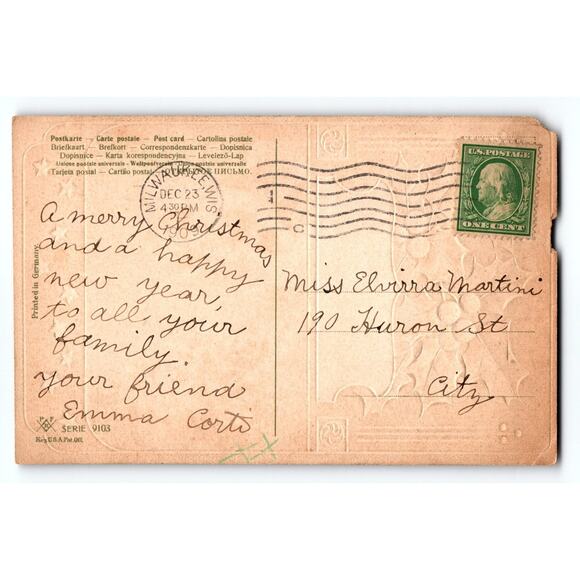 Postkarte – Carte postale – Post card – Cartolina postale
Briefkaart – Brefkort – Correspondenzkarte – Dopisnica
Dopisnice – Karta korespondencyjna – Levelező-Lap
Union postale universelle – Weltpostverein – Union postale universelle
Tarjeta postal – Cartão postal – ОТКРЫТОЕ ПИСЬМО.
MILWAUKEE, WIS
DEC 23
4 30 PM
1909
1
C
U.S. POSTAGE
ONE CENT
A merry Christmas
and a happy
new year,
to all your
family.
your friend
Emma Corti
Miss Elvirra Martini
190 Huron St
City
Printed in Germany
SERIE 9103
Reg. U.S.A. Pat. Off.